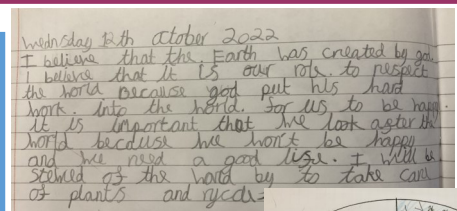 wednsday 12th october 2022
I believe that the Earth was created by god.
I believe that it is our role. to respect
the world because god put his hard
work. into the world. for us to be happy.
it is important that we look after the
world because we won't be happy
and we need a good life. I will be
stewed of the world by to take care
of plants and